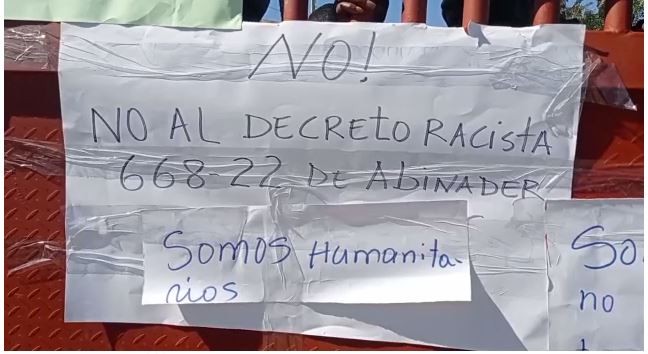 NO!
NO AL DECRETO RACISTA
668-22 DE ABINADER
Somos Humanita-
rios
So
no